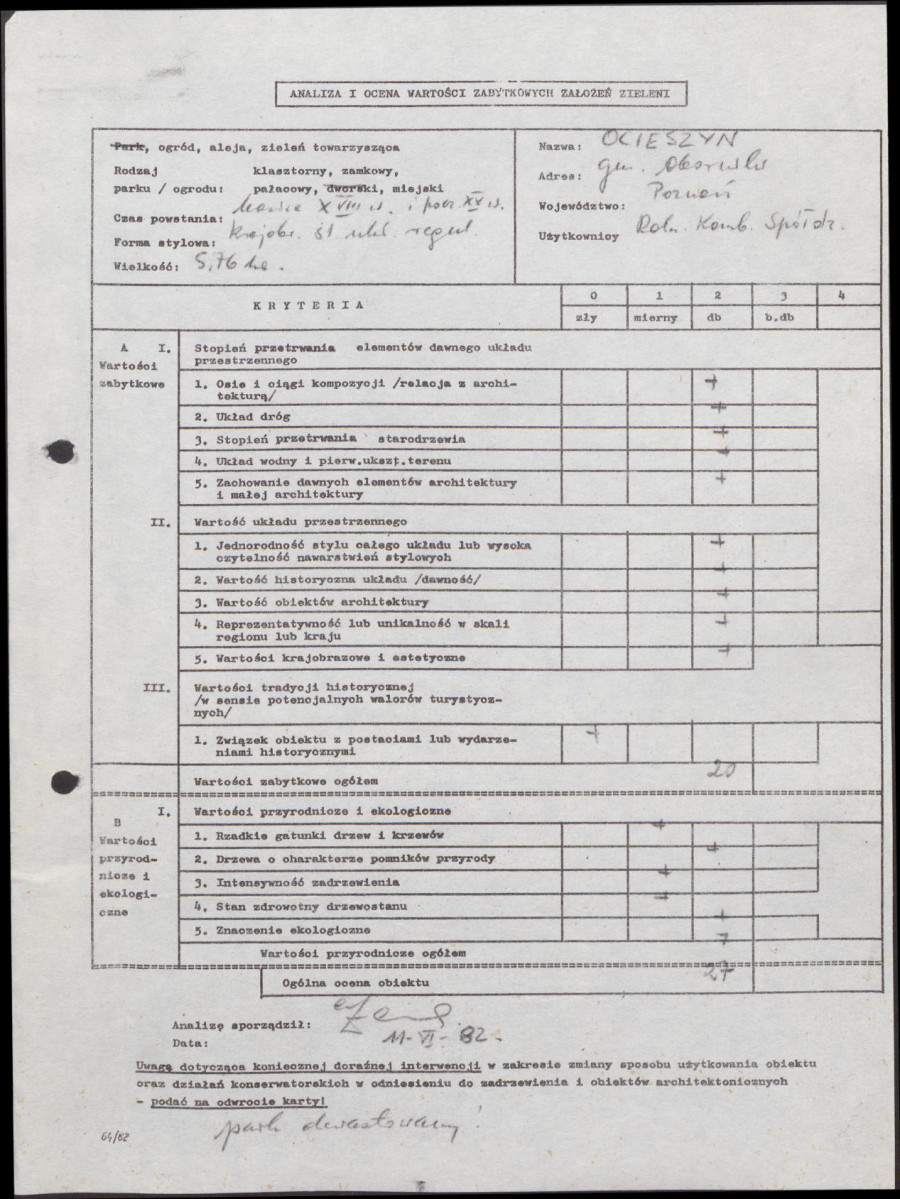 ANALIZA I OCENA WARTOŚCI ZABYTKOWYCH ZAŁOŻEŃ ZIELENI
Park, ogród, aleja, zieleń towarzysząca
Rodzaj klasztorny, zamkowy,
parku / ogrodu: pałacowy, dworski, miejski
Czas powstania: koniec XVIII w. i pocz. XX w.
Forma stylowa: krajobr. śl. ukł. regul.
Wielkość: 5,76 ha.
Nazwa: OCIESZYN
Adres: gm. Oborniki
Województwo: Poznań
Użytkownicy Roln. Komb. Spółdz.
KRYTERIA
0 1 2 3 4
zły mierny db b.db
A I. Stopień przetrwania elementów dawnego układu
przestrzennego
Wartości
zabytkowe
1. Osie i ciągi kompozycji /relacja z archi-
tekturą/ +
2. Układ dróg +
3. Stopień przetrwania starodrzewia +
4. Układ wodny i pierw.ukszt.terenu +
5. Zachowanie dawnych elementów architektury
i małej architektury +
II. Wartość układu przestrzennego
1. Jednorodność stylu całego układu lub wysoka
czytelność nawarstwień stylowych +
2. Wartość historyczna układu /dawność/ +
3. Wartość obiektów architektury +
4. Reprezentatywność lub unikalność w skali
regionu lub kraju +
5. Wartości krajobrazowe i estetyczne +
III. Wartości tradycji historycznej
/w sensie potencjalnych walorów turystycz-
nych/
1. Związek obiektu z postaciami lub wydarze-
niami historycznymi +
Wartości zabytkowe ogółem 20
B I. Wartości przyrodnicze i ekologiczne
Wartości
przyrod-
nicze i
ekologi-
czne
1. Rzadkie gatunki drzew i krzewów +
2. Drzewa o charakterze pomników przyrody +
3. Intensywność zadrzewienia +
4. Stan zdrowotny drzewostanu +
5. Znaczenie ekologiczne +
Wartości przyrodnicze ogółem 7
Ogólna ocena obiektu 27
Analizę sporządził:
Data: 11-VI-82.
Uwagę dotycząca koniecznej doraźnej interwencji w zakresie zmiany sposobu użytkowania obiektu
oraz działań konserwatorskich w odniesieniu do zadrzewienia i obiektów architektonicznych
- podać na odwrocie karty!
park dewastowany!
64/82